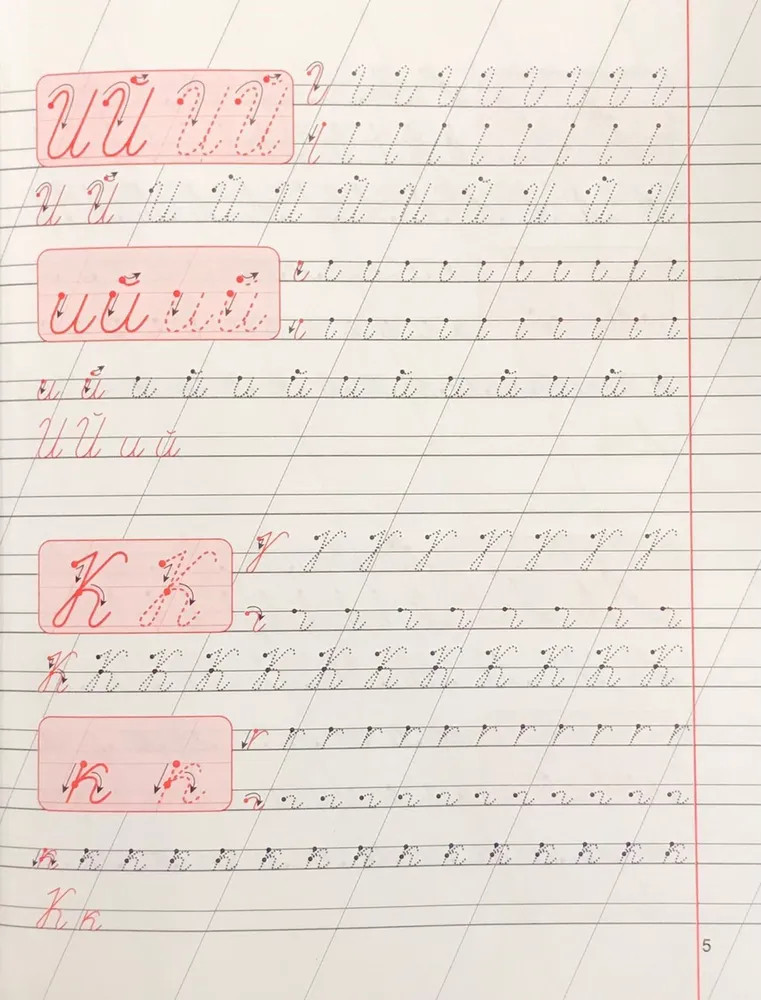 И Й И Й
И Й И Й И Й И Й И Й И
и й и й
и й и й и й и й и й и й и
И Й и й
К К
К К К К К К К К К К К К
к к
к к к к к к к к к к к к к к к
К к
5